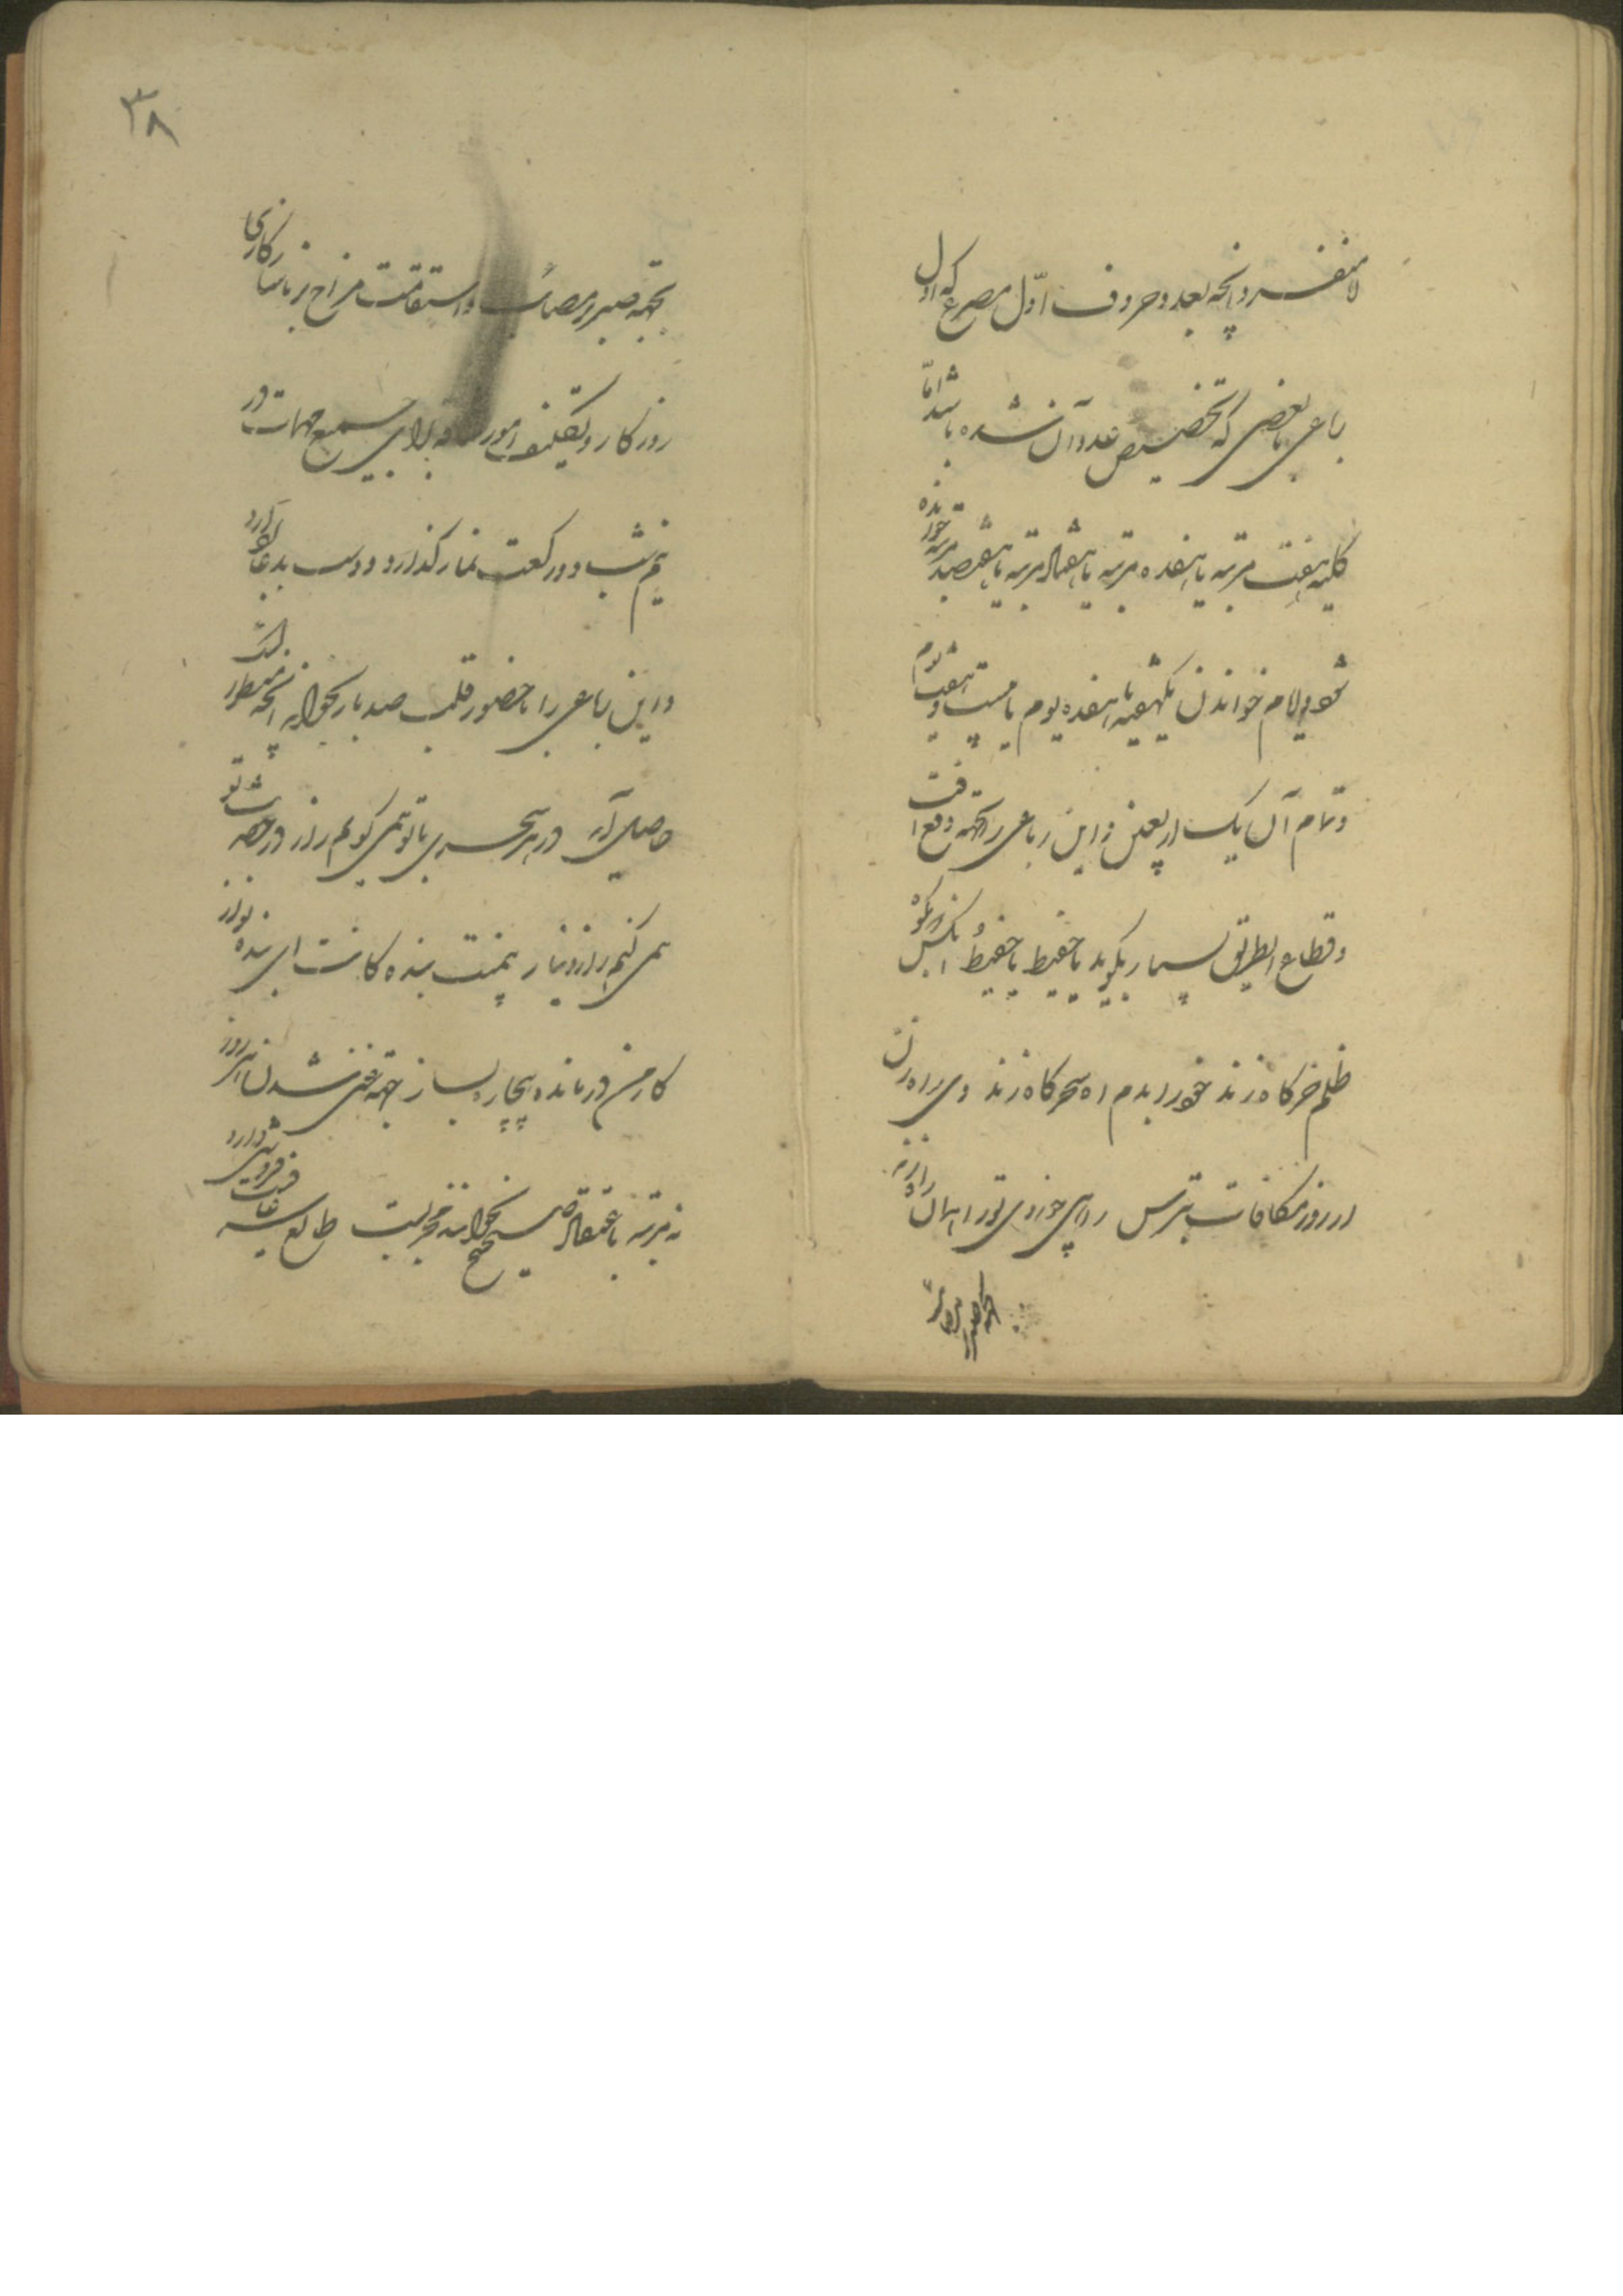 لا ینفسر و آنچه بعدد حروف اوّل مصرع که اول
رباعی یا بعضی که تخصیص عدد آن نشده باشد امّا
کلیه هفت مرتبه یا هفده مرتبه یا هفتاد مرتبه یا هفتصد مرتبه خوانده
شود و ایام خواندن یکهفته یا هفده یوم یا بیست و هفت یوم
و تمام آن یک اربعین و این رباعی را جهة دفع آفت
و قطاع الطریق بسیار بگوید یا حفیظ یا حفیظُ
ظلم خرگاه زند خود را بدم آه سحرگاه زند وی راه زن
از روز مکافات بترس راهی که زدی تو را همان راه زند
۳۸
جهة صبر در مصائب و استقامت مزاج بر ناسازکاری
روزکار و امور و برای جمیع مهمات در
نیم شب دو رکعت نماز کذارد و دست بدعا بردارد
و این رباعی را با حضور قلب صد بار بخواند آنچه مطلب
حاصل آید در هر سحری با تو همی کویم راز در حضرت تو
همی کنم راز و نیاز بی منت بنده کانت ای بنده نواز
کار من درمانده بیچاره بساز جهة غنی شدن هر روز
نه مرتبه با اعتقاد صحیح بخواند مجربست طالع سر عافیت فروشی دارد